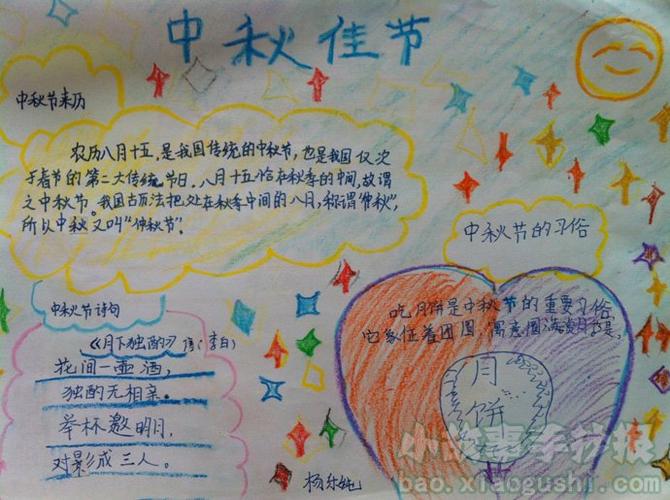 中秋佳节
中秋节来历
农历八月十五，是我国传统的中秋节，也是我国仅次
于春节的第二大传统节日。八月十五恰在秋季的中间，故谓
之中秋节。我国古历法把处在秋季中间的八月，称谓“仲秋”，
所以中秋又叫“仲秋节”。
中秋节的习俗
吃月饼是中秋节的重要习俗，
它象征着团圆，寓意圆满
月
饼
中秋节诗句
《月下独酌》 唐（李白）
花间一壶酒，
独酌无相亲。
举杯邀明月，
对影成三人。
杨乐
小故事手抄报
bao.xiaogushi.com